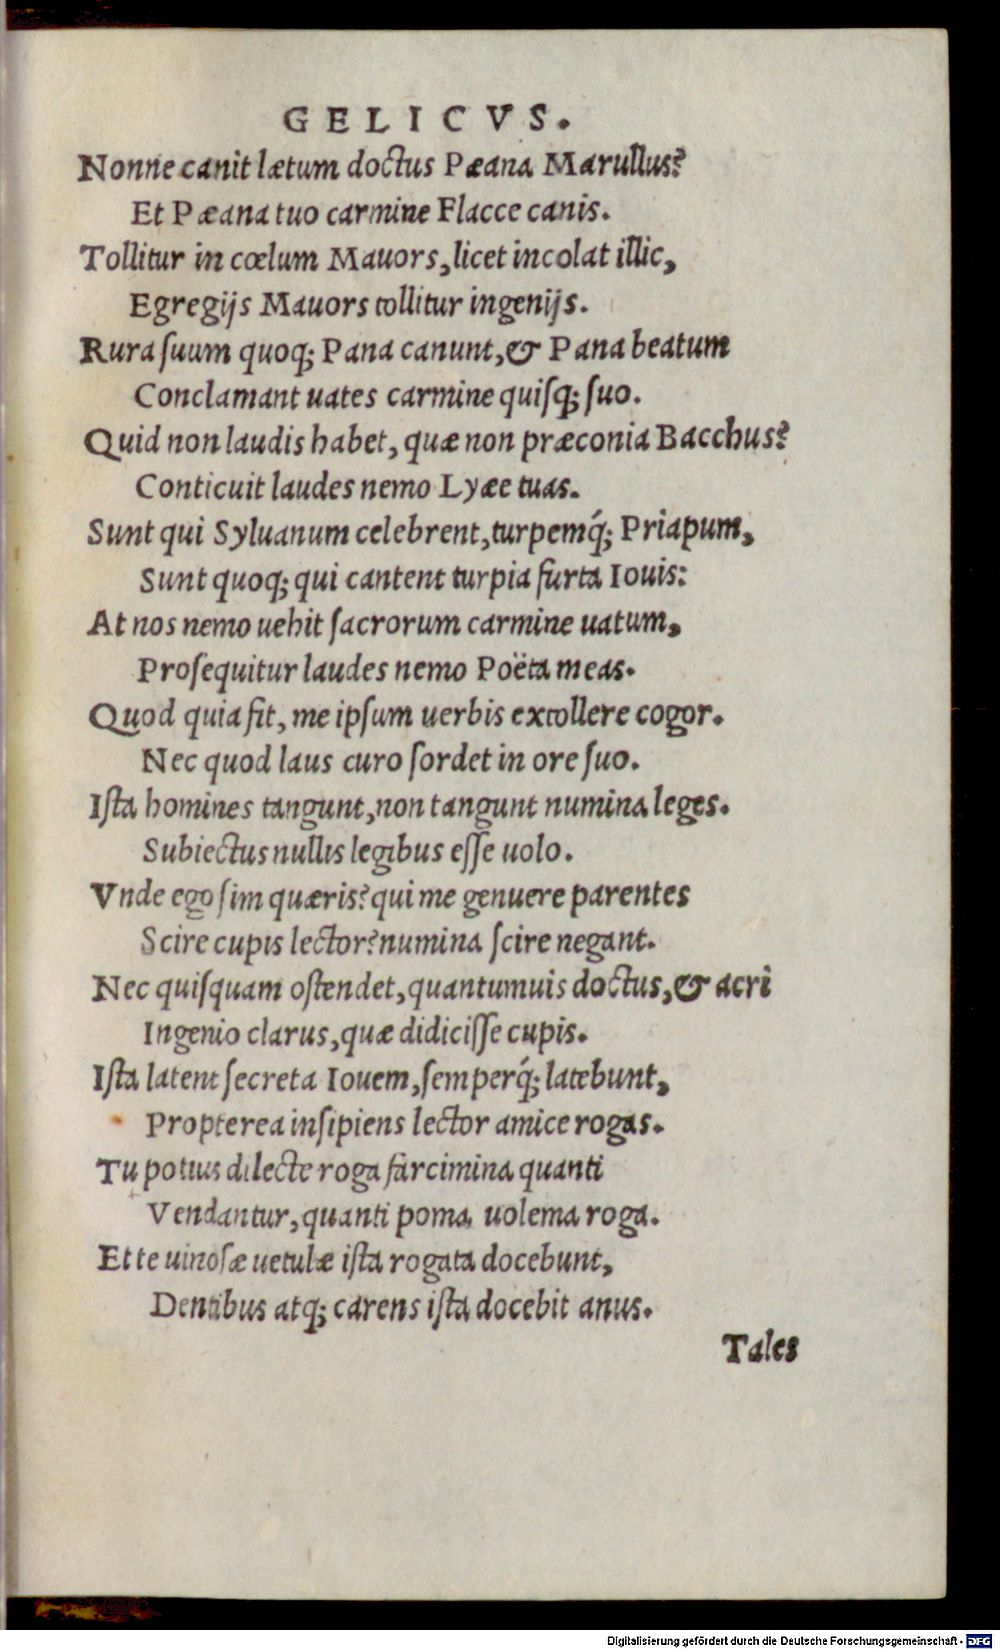 GELICVS.
Nonne canit lætum doctus Pæana Marullus?
Et Pæana tuo carmine Flacce canis.
Tollitur in cœlum Mauors, licet incolat illic,
Egregijs Mauors tollitur ingenijs.
Rura suum quoq; Pana canunt, & Pana beatum
Conclamant uates carmine quisq; suo.
Quid non laudis habet, quæ non præconia Bacchus?
Conticuit laudes nemo Lyæe tuas.
Sunt qui Syluanum celebrent, turpemq́; Priapum,
Sunt quoq; qui cantent turpia furta Iouis:
At nos nemo uehit sacrorum carmine uatum,
Prosequitur laudes nemo Poëta meas.
Quod quia fit, me ipsum uerbis extollere cogor.
Nec quod laus curo sordet in ore suo.
Ista homines tangunt, non tangunt numina leges.
Subiectus nullis legibus esse uolo.
Vnde ego sim quæris? qui me genuere parentes
Scire cupis lector? numina scire negant.
Nec quisquam ostendet, quantumuis doctus, & acri
Ingenio clarus, quæ didicisse cupis.
Ista latent secreta Iouem, semperq́; latebunt,
Propterea insipiens lector amice rogas.
Tu potius dilecte roga farcimina quanti
Vendantur, quanti poma uolema roga.
Et te uinosæ uetulæ ista rogata docebunt,
Dentibus atq; carens ista docebit anus.
Tales
Digitalisierung gefördert durch die Deutsche Forschungsgemeinschaft - DFG